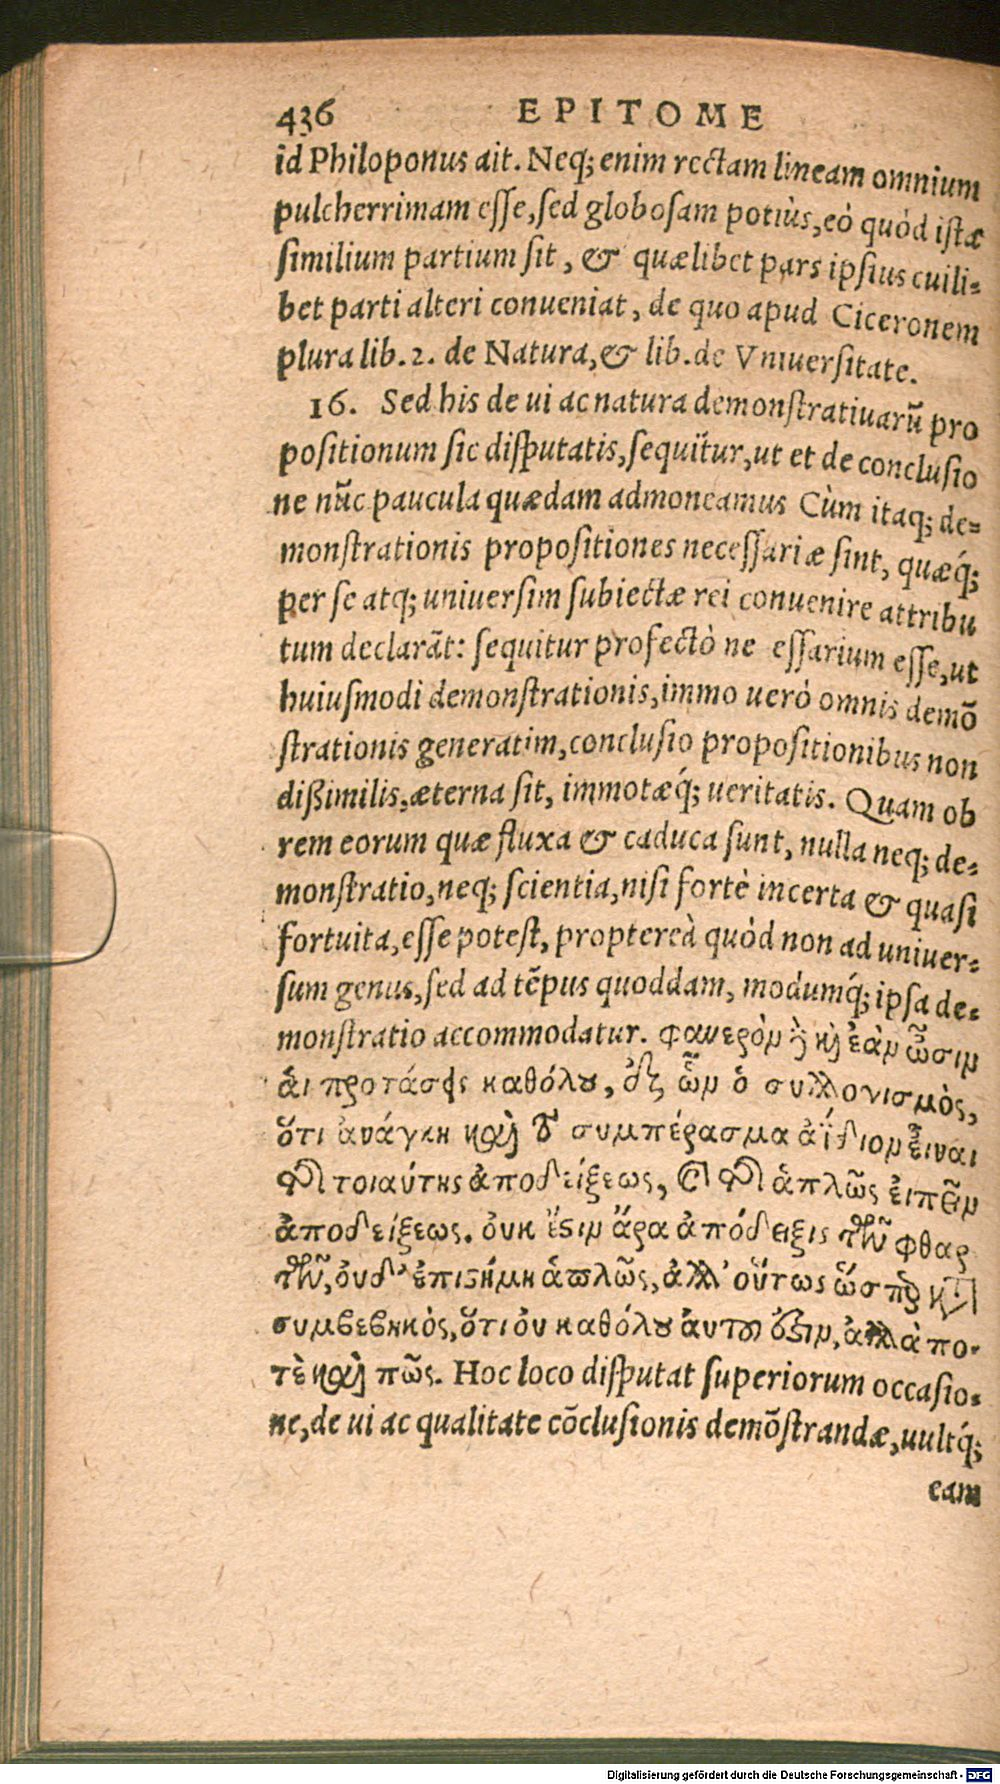 436 EPITOME
id Philoponus ait. Neq; enim rectam lineam omnium
pulcherrimam esse, sed globosam potiùs, eò quòd istæ
similium partium sit, & quælibet pars ipsius cuili-
bet parti alteri conueniat, de quo apud Ciceronem
plura lib. 2. de Natura, & lib. de Vniuersitate.
16. Sed his de ui ac natura demonstratiuarũ pro
positionum sic disputatis, sequitur, ut et de conclusio
ne nũc paucula quædam admoneamus Cùm itaq; de-
monstrationis propositiones necessariæ sint, quæq́;
per se atq; uniuersim subiectæ rei conuenire attribu
tum declarãt: sequitur profectò ne essarium esse, ut
huiusmodi demonstrationis, immo uerò omnis demõ
strationis generatim, conclusio propositionibus non
dißimilis, æterna sit, immotæq́; ueritatis. Quam ob
rem eorum quæ fluxa & caduca sunt, nulla neq; de-
monstratio, neq; scientia, nisi fortè incerta & quasi
fortuita, esse potest, proptereà quòd non ad uniuer-
sum genus, sed ad tẽpus quoddam, modumq́; ipsa de-
monstratio accommodatur. φανερὸν δὲ καὶ ἐὰν ὦσιν
ἁι προτάσεις καθόλου, ἐξ ὧν ὁ συλλογισμὸς,
ὅτι ἀνάγκη καὶ τὸ συμπέρασμα ἀΐδιον εἶναι
τῆς τοιαύτης ἀποδείξεως, καὶ τῆς ἁπλῶς ἐιπεῖν
ἀποδείξεως. ὀυκ ἔστιν ἄρα ἀπόδειξις τῶν φθαρ
τῶν, ὀυδ' ἐπιστήμη ἁπλῶς, ἀλλ' οὕτως ὥσπερ κατὰ
συμβεβηκὸς, ὅτι ὀυ καθόλου ἀυτοῦ ἐστιν, ἀλλὰ πο-
τὲ καὶ πῶς. Hoc loco disputat superiorum occasio-
ne, de ui ac qualitate cõclusionis demõstrandæ, uultq́;
eam
Digitalisierung gefördert durch die Deutsche Forschungsgemeinschaft - DFG